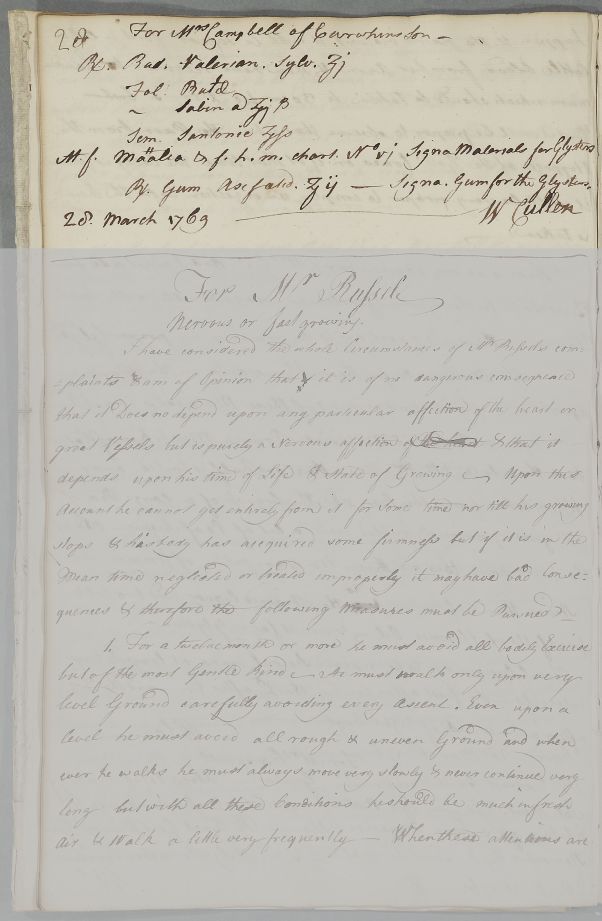 28 For Mrs Campbell of Carwhinston -
Rx. Rad. Valerian. Sylv. ʒj
Fol: Rutæ
~ Sabin a ʒj ß
Sem. Santonic ʒss
M. f. Maalia & f. h. m. chart. No vj Signa Materials for Glysters
Rx. Gum Asafœtid. ʒij — Signa. Gum for the Glysters.
28. March 1769 W Cullen
For Mr Russell
Nervous or fast growing.
I have considered the whole Circumstances of Mr Russels com-
-plaints & am of Opinion that it is of no dangerous consequence
that it Does no depend upon any particular affection of the heart or
great Vessels but is purely a Nervous affection of the heart & that it
depends upon his time of Life & State of Growing Upon this
Account he cannot get entirely free from it for some time nor till his growing
stops & his body has acquired some firmness but if it is in the
Mean time neglected or treated improperly it may have bad Conse:
quences & therefore the following Measures must be Pursued
1. For a twelvemonth or more he must avoid all bodily Exercise
but of the most Gentle kind He must walk only upon very
level Ground carefully avoiding every Ascent. Even upon a
level he must avoid all rough & uneven Ground and when
ever he walks he must always move very slowly & never continue very
long but with all these Conditions he should be much in fresh
Air & Walk a little very frequently — When these attentions are